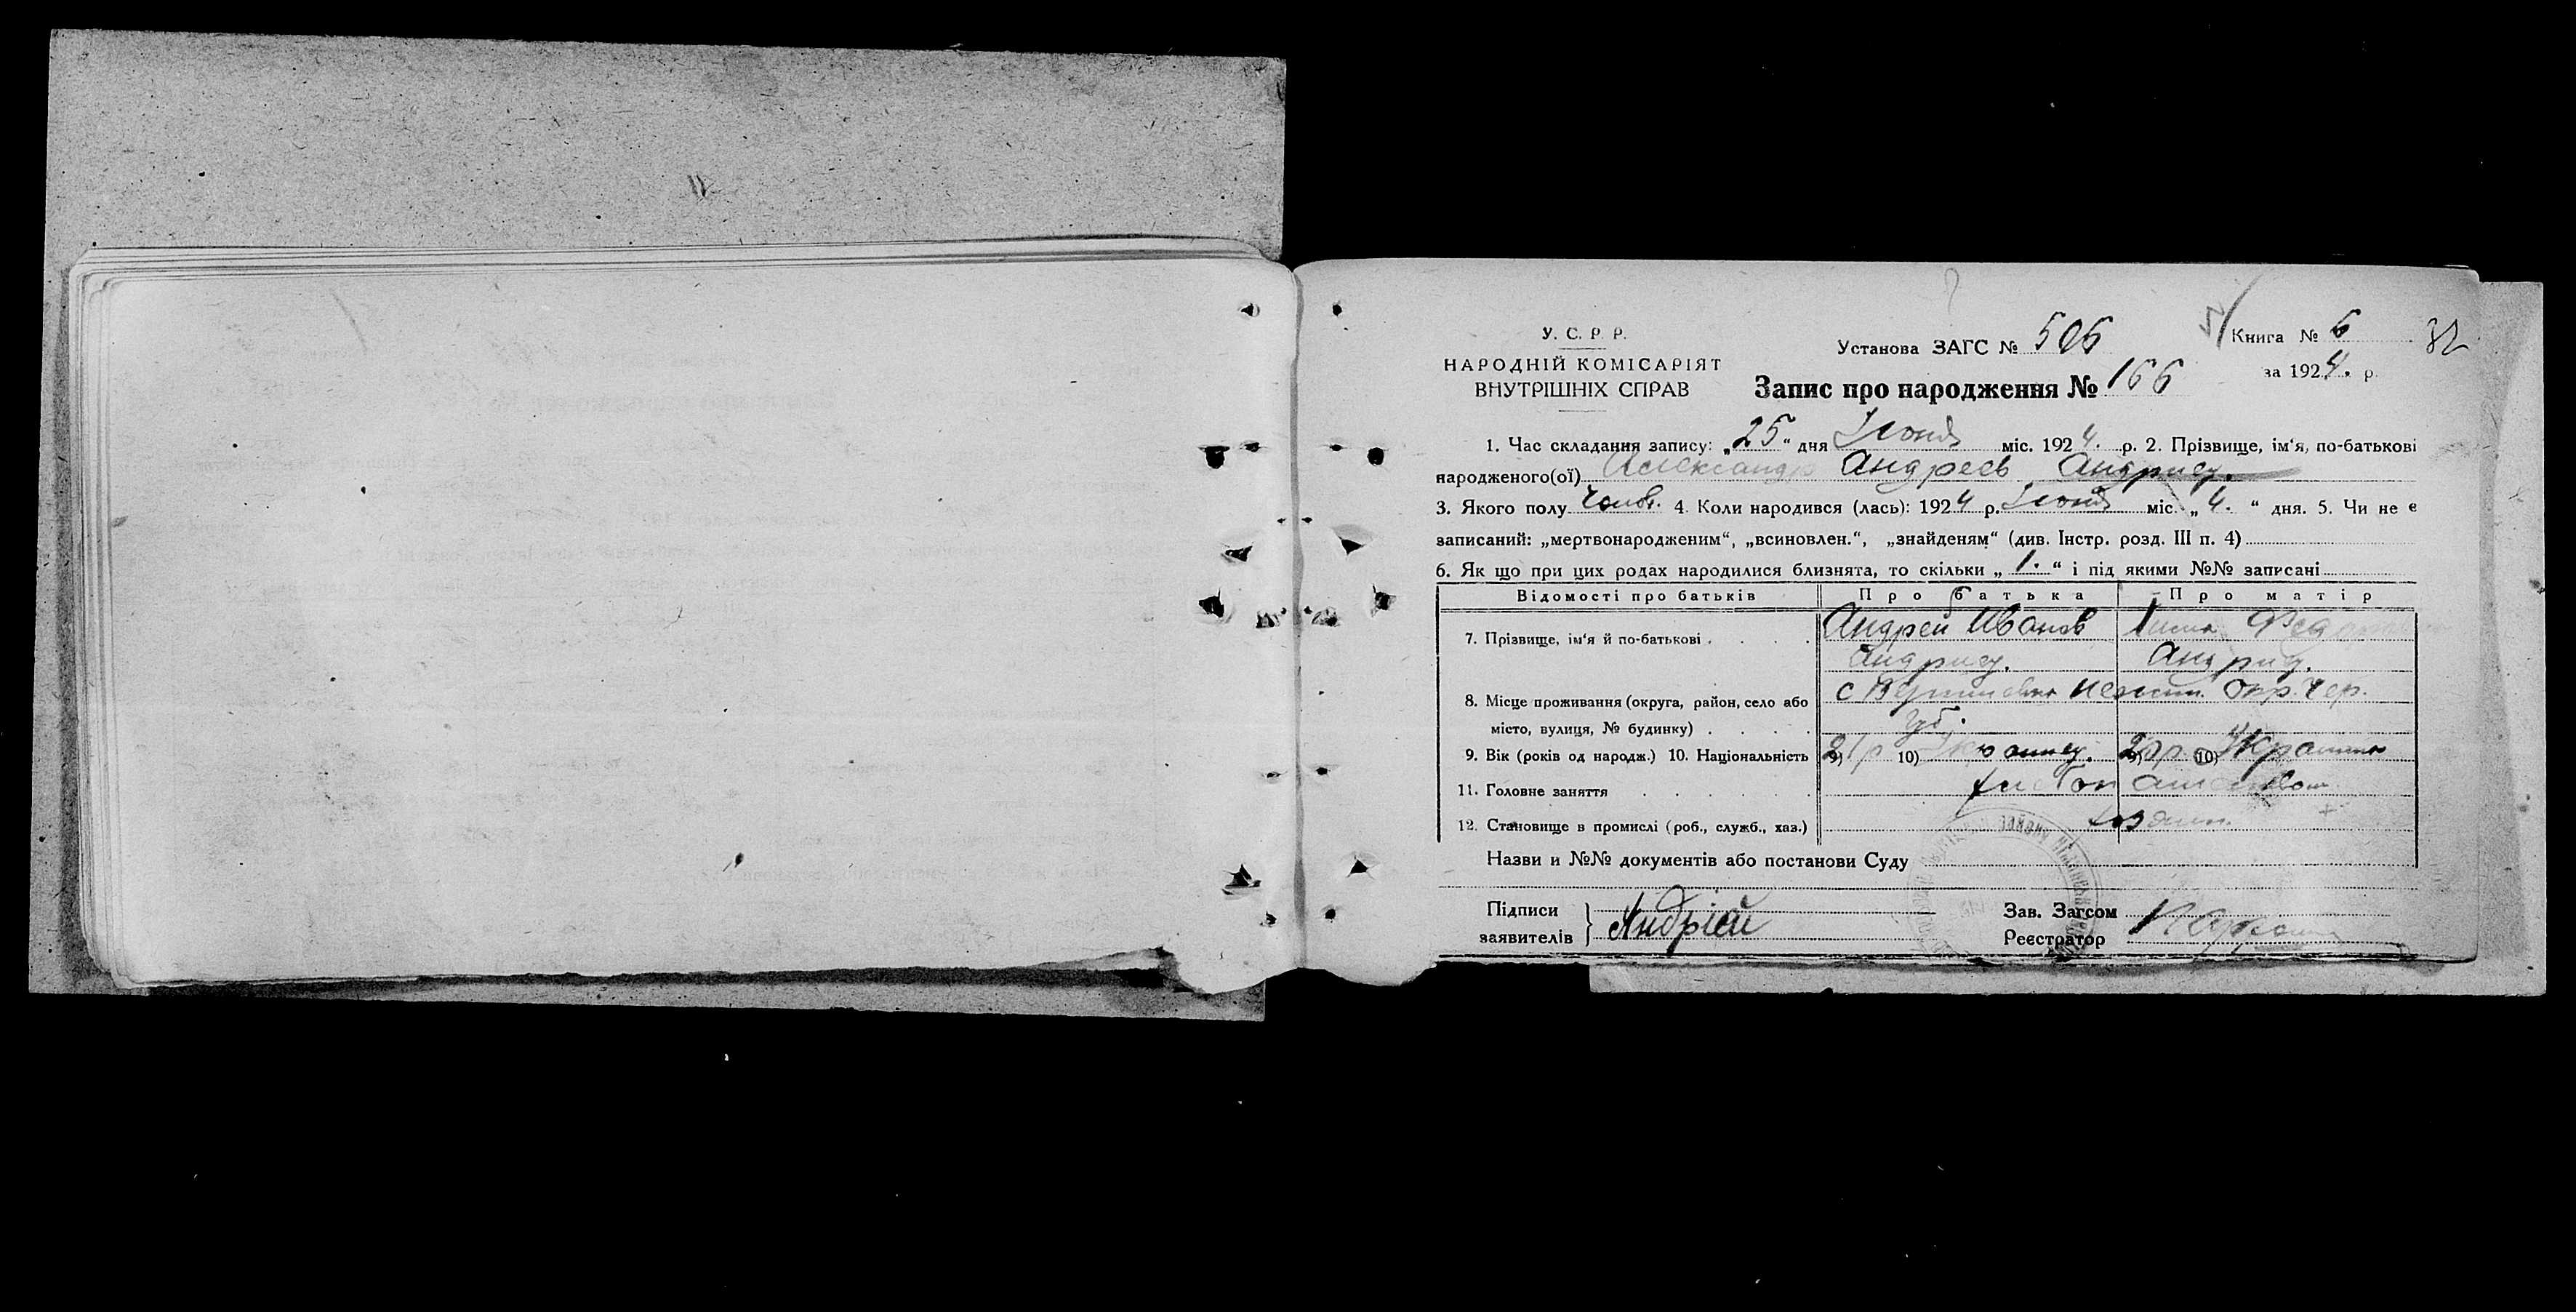 У. С. Р. Р.
НАРОДНІЙ КОМІСАРІЯТ
ВНУТРІШНІХ СПРАВ
Установа ЗАГС № 506
Книга № 6
32
за 1924. р.
Запис про народження № 166
1. Час складання запису: „25“ дня Июня міс. 1924. р. 2. Прізвище, ім'я, по-батькові
народженого(ої) Александр Андреев Андриец.
3. Якого полу Чолов. 4. Коли народився (лась): 1924 р. Июня міс. „4.“ дня. 5. Чи не є
записаний: „мертвонародженим“, „всиновлен.“, „знайденям“ (див. Інстр. розд. III п. 4)
6. Як що при цих родах народилися близнята, то скільки „1.“ і під якими №№ записані
Відомості про батьків Про батька Про матір
7. Прізвище, ім'я й по-батькові Андрей Иванов
Андриец. Андриец.
8. Місце проживання (округа, район, село або с Нежин. Окр. Чер.
місто, вулиця, № будинку) Губ.
9. Вік (років од народж.) 10. Національність 9) 21 р 10) 9) 20 р. 10) Украинка
11. Головне заняття
12. Становище в промислі (роб., служб., хаз.) хозяин.
Назви и №№ документів або постанови Суду
Підписи
заявителів
Андрієц
Зав. Загсом
Реєстратор